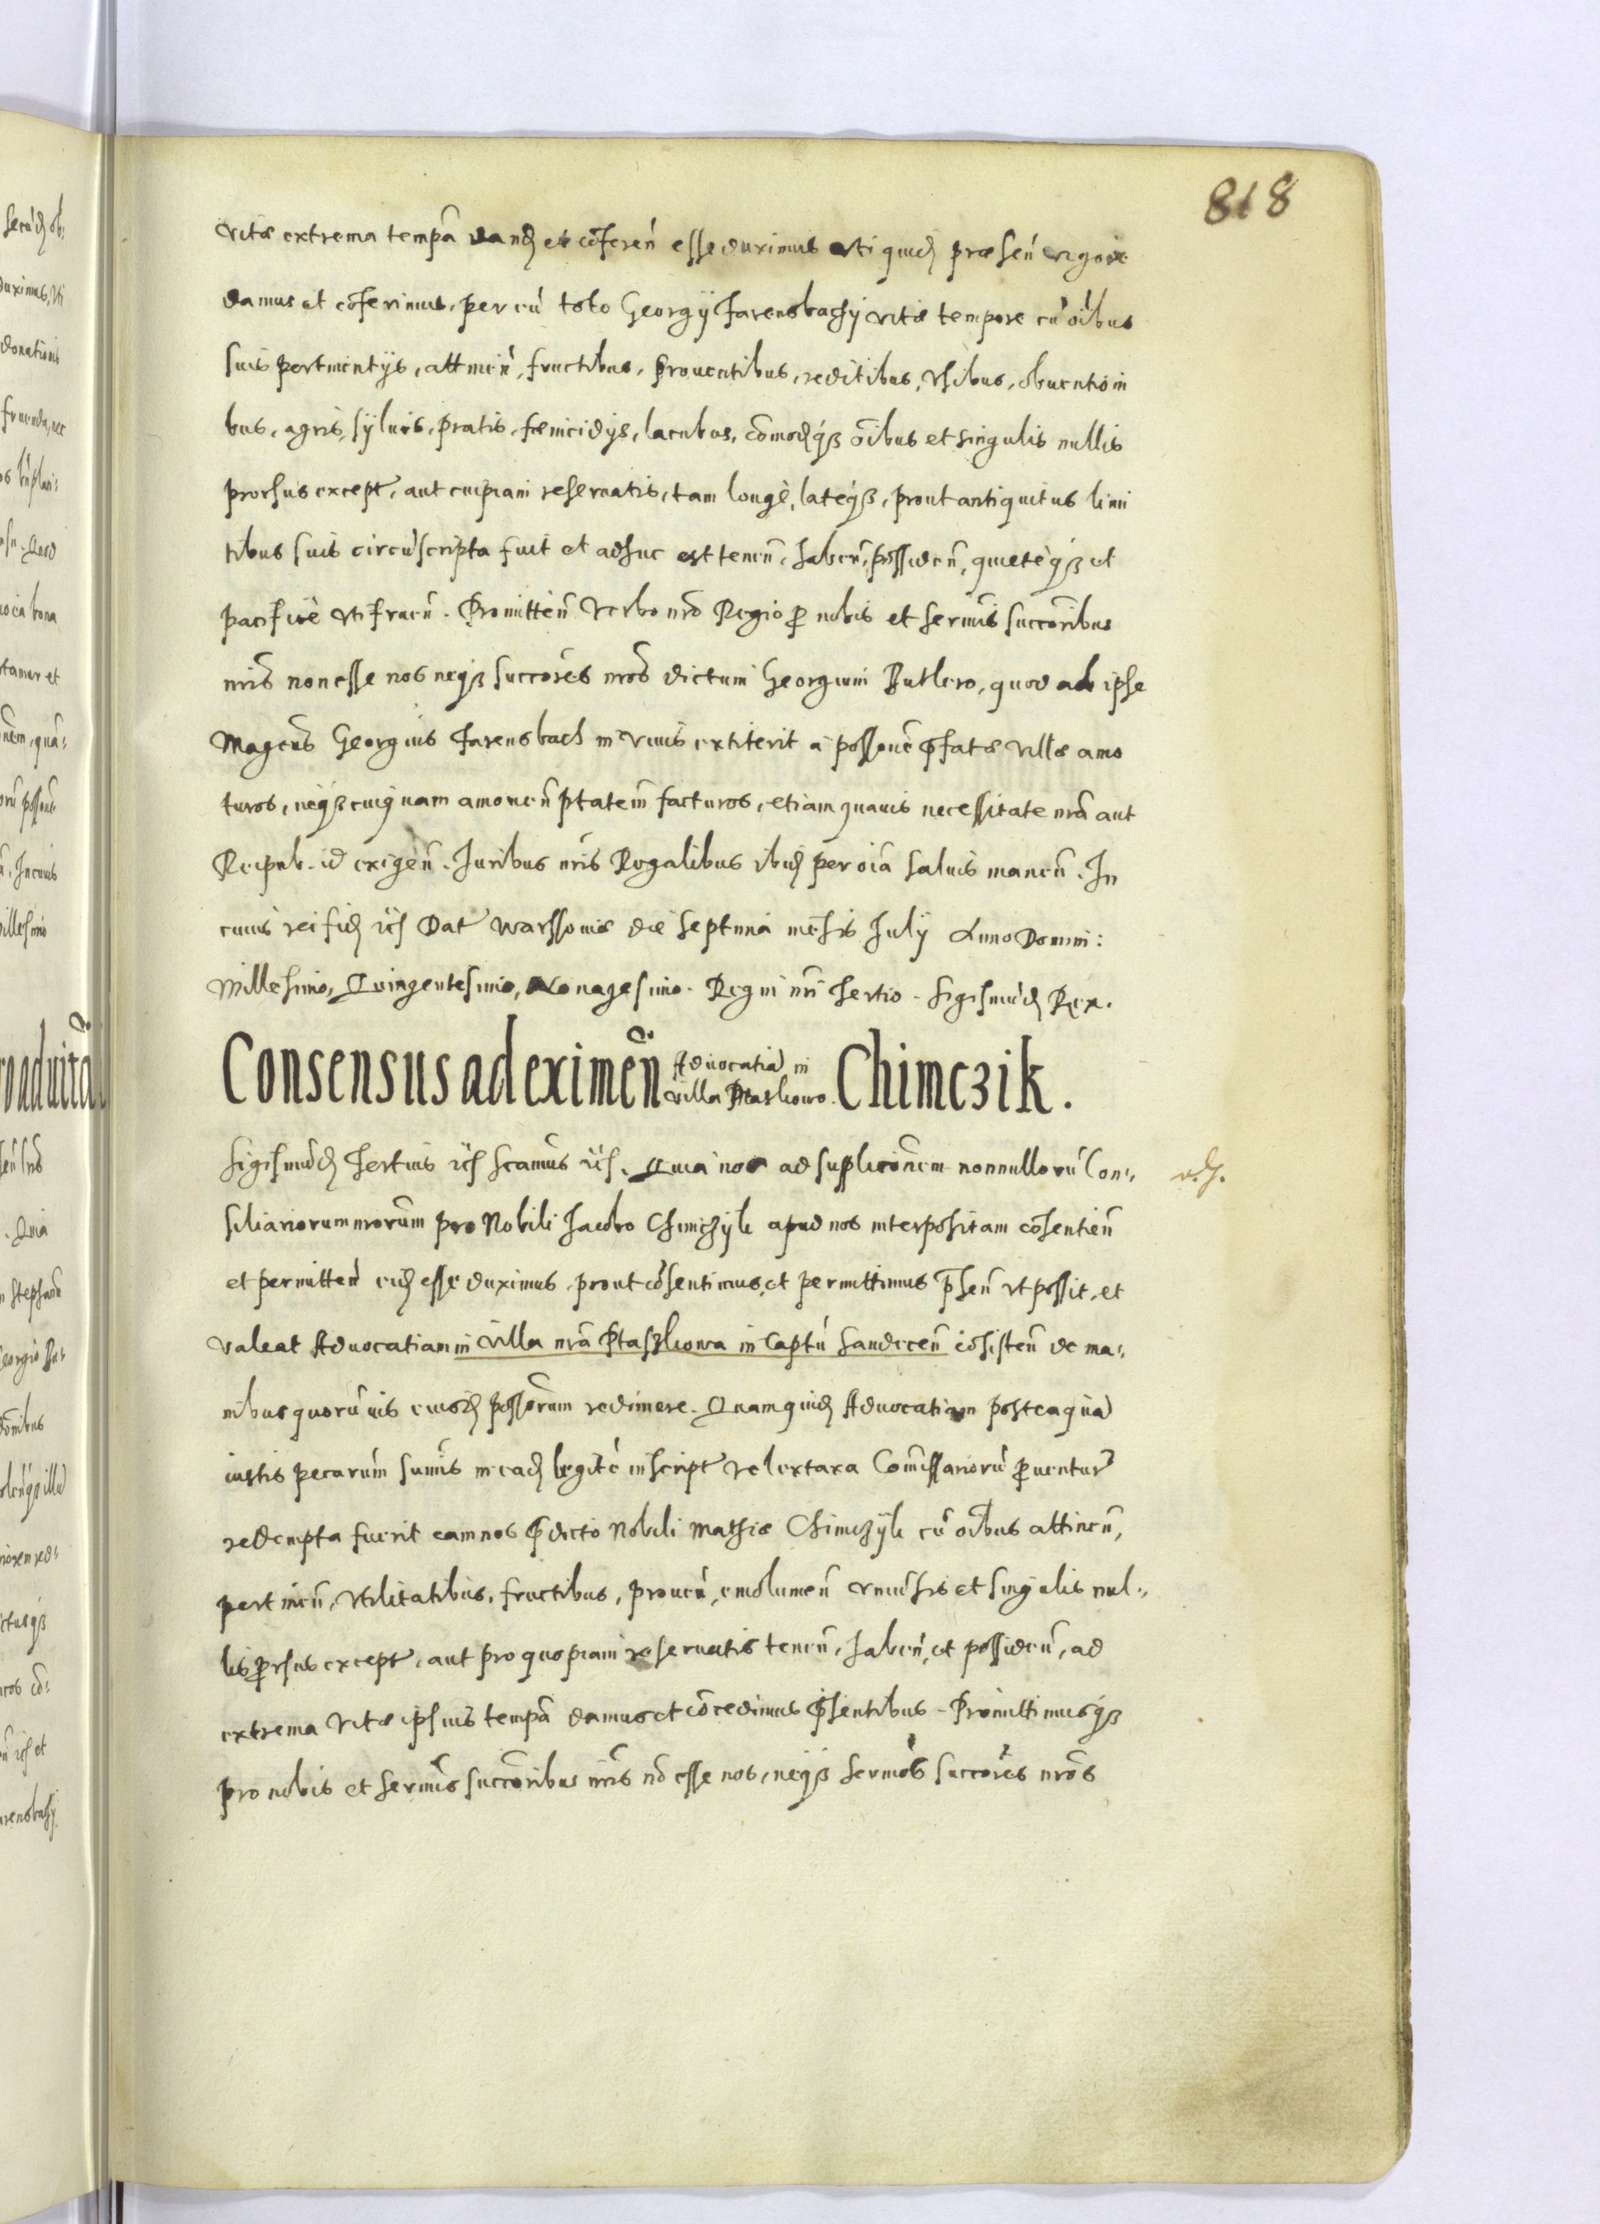 818
vitæ extrema tempa͠ dandȩ et co͠feren̄ esse duximus uti quidȩ præsen̄ vigore
damus et co͠ferimus, per eu͠ toto Georgij Farensbachij vitæ tempore cu͠ oi͠bus
suis pertinentijs, attinen̄, fructibus, prouentibus, reditibus, vsibus, obuentioni
bus, agris, syluis, pratis, fœnicidijs, lacubus, co͠modisqȝ oi͠bus et singulis nullis
prorsus except', aut cuipiam reseruatis, tam longè, latèqȝ, prout antiquitus limi
tibus suis circu͠scripta fuit et adhuc est tenen̄, haben̄, possiden̄, quietèqȝ et
pacificè vtifruen̄. Promitten̄ verbo nr͠o Regio ꝑ nobis et sermi͠s succori͠bus
nri͠s non esse nos neqȝ succore͠s nro͠s dictum Georgium Butlero, quoad ipse
Magcus͠ Georgius Farensbach in viuis extiterit a posson͠e p͠fatæ villæ amo
turos, neqȝ cuiquam amouen̄ ptatem͠ facturos, etiam quauis necessitate nr͠a aut
Reipub. id exigen̄. Iuribus nri͠s Regalibus ibidȩ per oi͠a saluis manen̄. In
cuius rei fidȩ etc̃ Dat' Warssouiæ die septima me͠sis Iulij Anno Domini:
Millesimo, Quingentesimo, Nonagesimo. Regni nri͠ tertio. Sigismu͠dȩ Rex.
Consensus ad eximen̄ Aduocatia͠ in villa Ptaskowo. Chimczik.
Sigismu͠dȩ tertius etc̃ scamus͠ etc̃. Quia nos ad supplicon͠em nonnulloru͠ Con:,
siliariorum nroru͠m pro Nobili Iacobo Chimczyk apud nos interpositam co͠sentien̄
et permitten̄ eidȩ esse duximus, prout co͠sentimus, et permittimus p͠sen̄ vt possit, et
valeat Aduocatiam in villa nr͠a Ptaszkowa in Captu͠ Sandecen̄ co͠sisten̄ de ma:,
nibus quoru͠uis eiusdȩ posso͠rum redimere. Quam quidȩ Aduocatiam posteaqua͠
iustis pecaru͠m sum͠is in eadȩ legitè inscript' vel ex taxa Com͠issarioru͠ ꝓuentur'
redempta fuerit eam nos p͠dicto Nobili Mathiæ Chimczyk cu͠ oi͠bus attinen̄,
pertinen̄, vtilitatibus, fructibus, prouen̄, emolumen̄ vniuersis et singulis nul:,
lis ꝓrsus except', aut pro quopiam reseruatis tenen̄, haben̄, et possiden̄, ad
extrema vitæ ipsius tempa͠ damus et co͠cedimus p͠sentibus. Promittimusqȝ
pro nobis et sermi͠s succori͠bus nri͠s no͠ esse nos, neqȝ sermo͠s succore͠s nro͠s